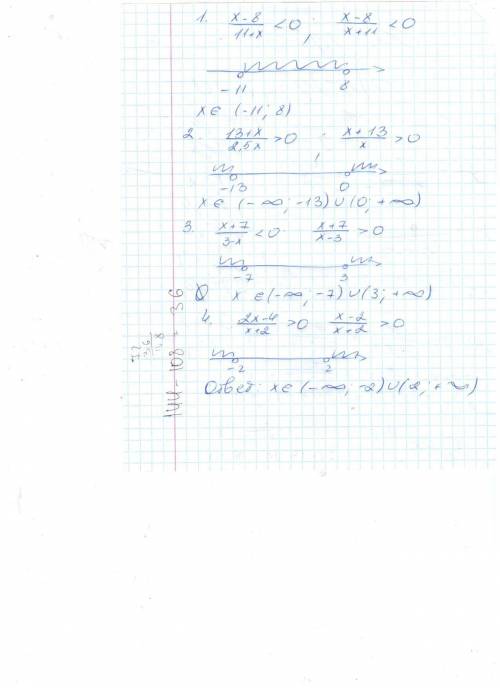 1. (x-8)/(11+x) <0 , (x-8)/(x+11) <0
-11 8
x ∈ (-11; 8)
2. (13+x)/(2,5x) >0 , (x+13)/x >0
-13 0
x ∈ (-∞; -13) ∪ (0; +∞)
3. (x+7)/(3-x) <0 (x+7)/(x-3) >0
-7 3
x ∈ (-∞, -7) ∪ (3; +∞)
4. (2x-4)/(x+2) >0 (x-2)/(x+2) >0
-2 2
Ответ: x ∈ (-∞; -2) ∪ (2; +∞)
144-108 = 36